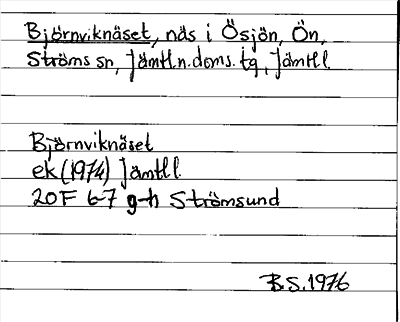 Björnviknäset, näs i Ösjön, Ön,
Ströms sn, Jämtl.n.doms.tg, Jämtl l
Björnviknäset
ek (1974) Jämtl l.
20F 6-7 g-h Strömsund
B.S. 1976